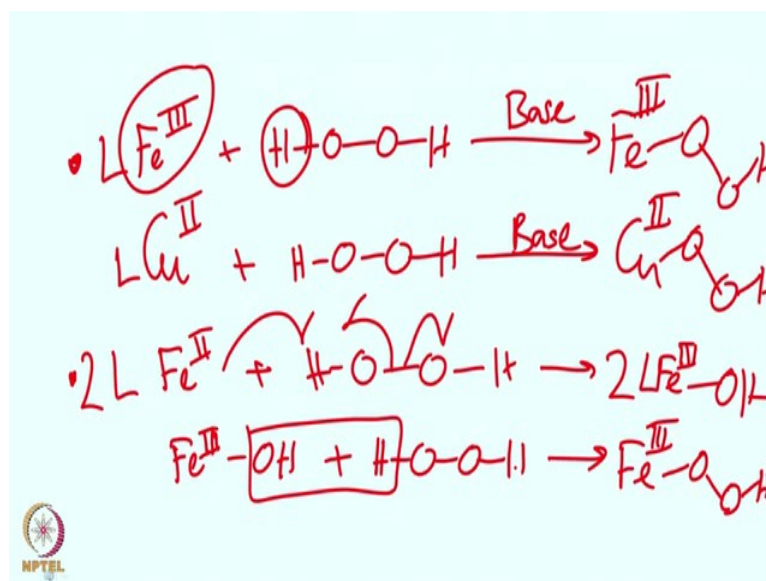 • LFe^III + H-O-O-H Base→ Fe^III-O-O-H
LCu^II + H-O-O-H Base→ Cu^II-O-O-H
• 2L Fe^II + H-O-O-H → 2LFe^III-OH
Fe^III-OH + H-O-O-H → Fe^III-O-O-H
NPTEL